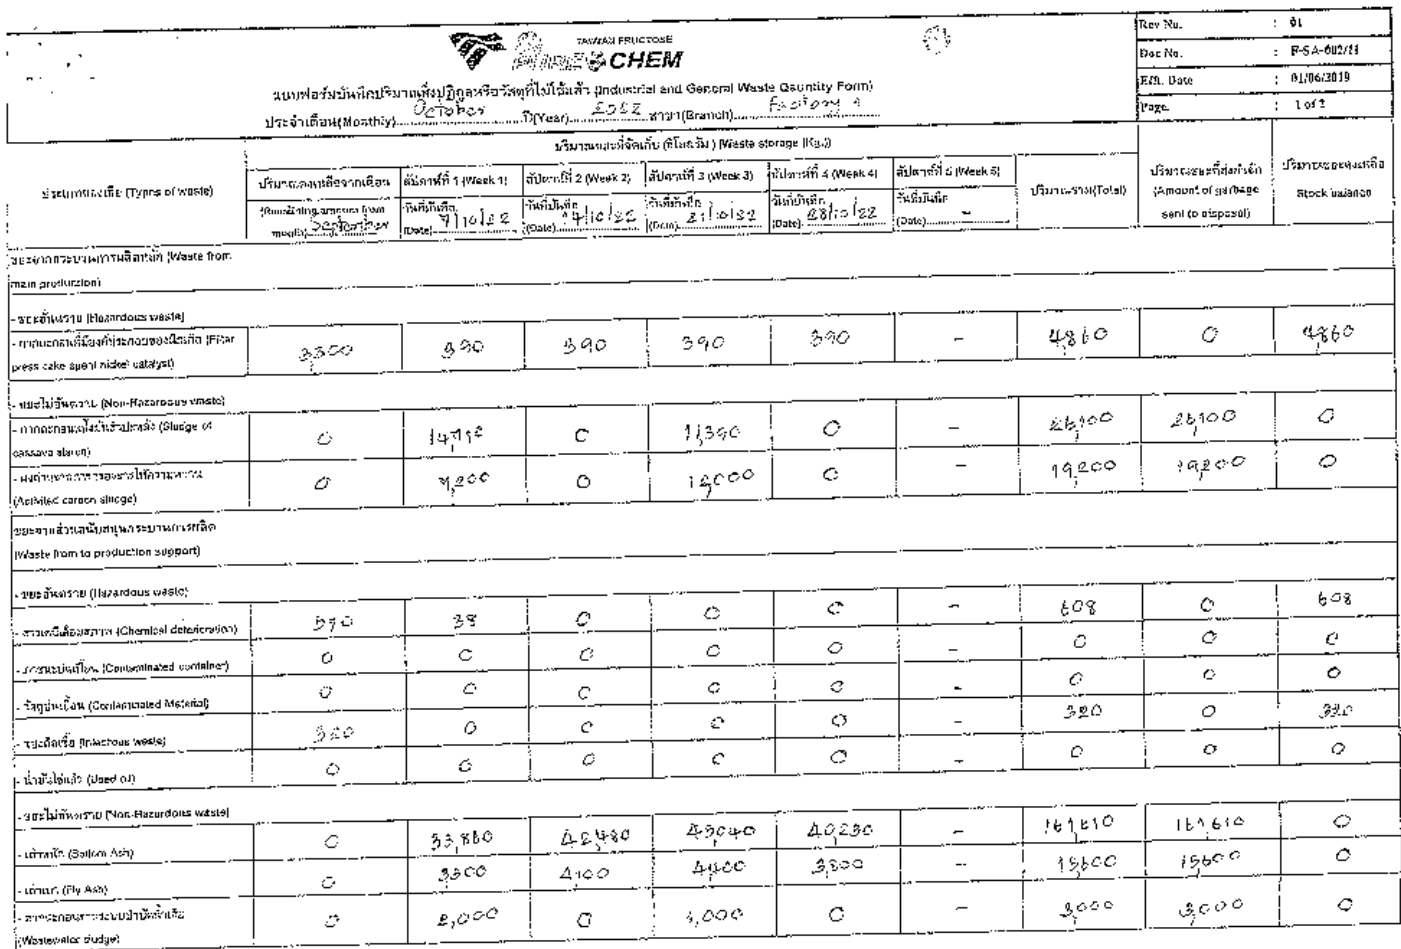 TAIWAN FRUCTOSE
CHEM
Rev No. : 01
Doc No. : F-SA-002/11
Eff. Date : 01/06/2019
Page. : 1 of 2
แบบฟอร์มบันทึกปริมาณสิ่งปฏิกูลหรือวัสดุที่ไม่ใช้แล้ว (Industrial and General Waste Qauntity Form)
ประจำเดือน(Monthly) October ปี(Year) 2022 สาขา(Branch) Factory 1
ประเภทของเสีย (Types of waste)
ปริมาณขยะที่จัดเก็บ (กิโลกรัม) (Waste storage (Kg.))
ปริมาณคงเหลือจากเดือน (Remaining amount from month) September
สัปดาห์ที่ 1 (Week 1) วันที่บันทึก (Date) 7/10/22
สัปดาห์ที่ 2 (Week 2) วันที่บันทึก (Date) 14/10/22
สัปดาห์ที่ 3 (Week 3) วันที่บันทึก (Date) 21/10/22
สัปดาห์ที่ 4 (Week 4) วันที่บันทึก (Date) 28/10/22
สัปดาห์ที่ 5 (Week 5) วันที่บันทึก (Date) -
ปริมาณรวม(Total)
ปริมาณขยะที่ส่งกำจัด (Amount of garbage sent to disposal)
ปริมาณขยะคงเหลือ Stock balance
ขยะจากกระบวนการผลิตหลัก (Waste from
main production)
- ขยะอันตราย (Hazardous waste)
- กากตะกอนที่มีองค์ประกอบของนิกเกิล (Filter press cake spent nickel catalyst) 3300 390 390 390 390 - 4,860 0 4,860
- ขยะไม่อันตราย (Non-Hazardous waste)
- กากตะกอนแป้งมันสำปะหลัง (Sludge of cassava starch) 0 0 11,390 0 - 26,100 26,100 0
(Activited carbon sludge) 0 7,200 0 12,000 0 - 19,200 19,200 0
ขยะจากส่วนสนับสนุนกระบวนการผลิต
(Waste from to production support)
- ขยะอันตราย (Hazardous waste)
- สารเคมีเสื่อมสภาพ (Chemical deterioration) 570 38 0 0 0 - 608 0 608
- ภาชนะปนเปื้อน (Contaminated container) 0 0 0 0 0 - 0 0 0
- วัสดุปนเปื้อน (Contaminated Material) 0 0 0 0 0 - 0 0 0
- ขยะติดเชื้อ (Infectious waste) 320 0 0 0 0 - 320 0 320
- น้ำมันใช้แล้ว (Used oil) 0 0 0 0 0 - 0 0 0
- ขยะไม่อันตราย (Non-Hazardous waste)
- เถ้าหนัก (Bottom Ash) 0 33,860 42,480 43,040 40,230 - 0
- เถ้าเบา (Fly Ash) 0 3,300 4,100 4,400 3,800 - 15,600 15,600 0
- กากตะกอนจากระบบบำบัดน้ำเสีย (Wastewater sludge) 0 2,000 0 1,000 0 - 3,000 3,000 0